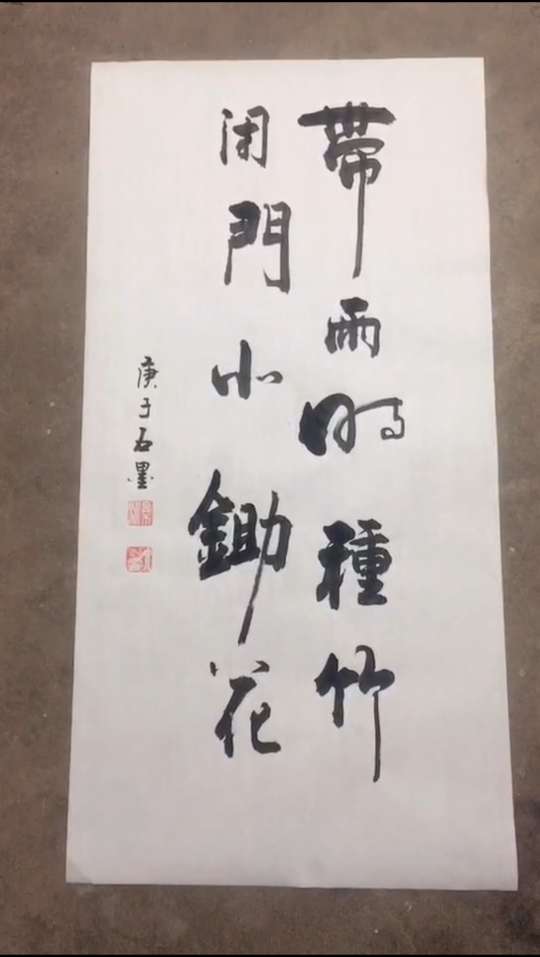 帶雨時種竹
閉門小鋤花
庚子石墨